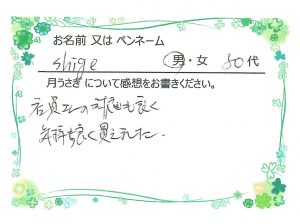 お名前 又は ペンネーム
shige 男・女 50代
月うさぎ について感想をお書きください。
店員さんの対応も良く
気持ち良く買えました。